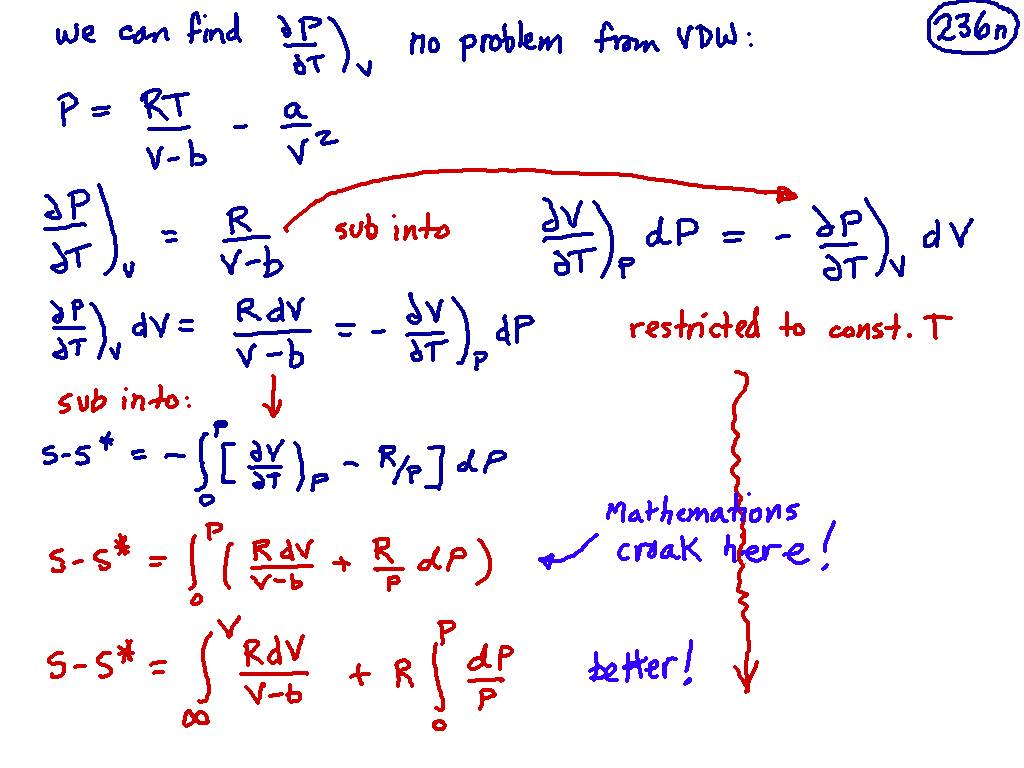 we can find ∂P/∂T)_V no problem from VDW: 236n
P = RT/(V-b) - a/V²
∂P/∂T)_V = R/(V-b) sub into ∂V/∂T)_P dP = - ∂P/∂T)_V dV
∂P/∂T)_V dV = R dV/(V-b) = - ∂V/∂T)_P dP restricted to const. T
sub into:
S-S* = - ∫₀^P [∂V/∂T)_P - R/P] dP
Mathemations
croak here!
S-S* = ∫₀^P (R dV/(V-b) + R/P dP)
S-S* = ∫_∞^V R dV/(V-b) + R ∫₀^P dP/P better!